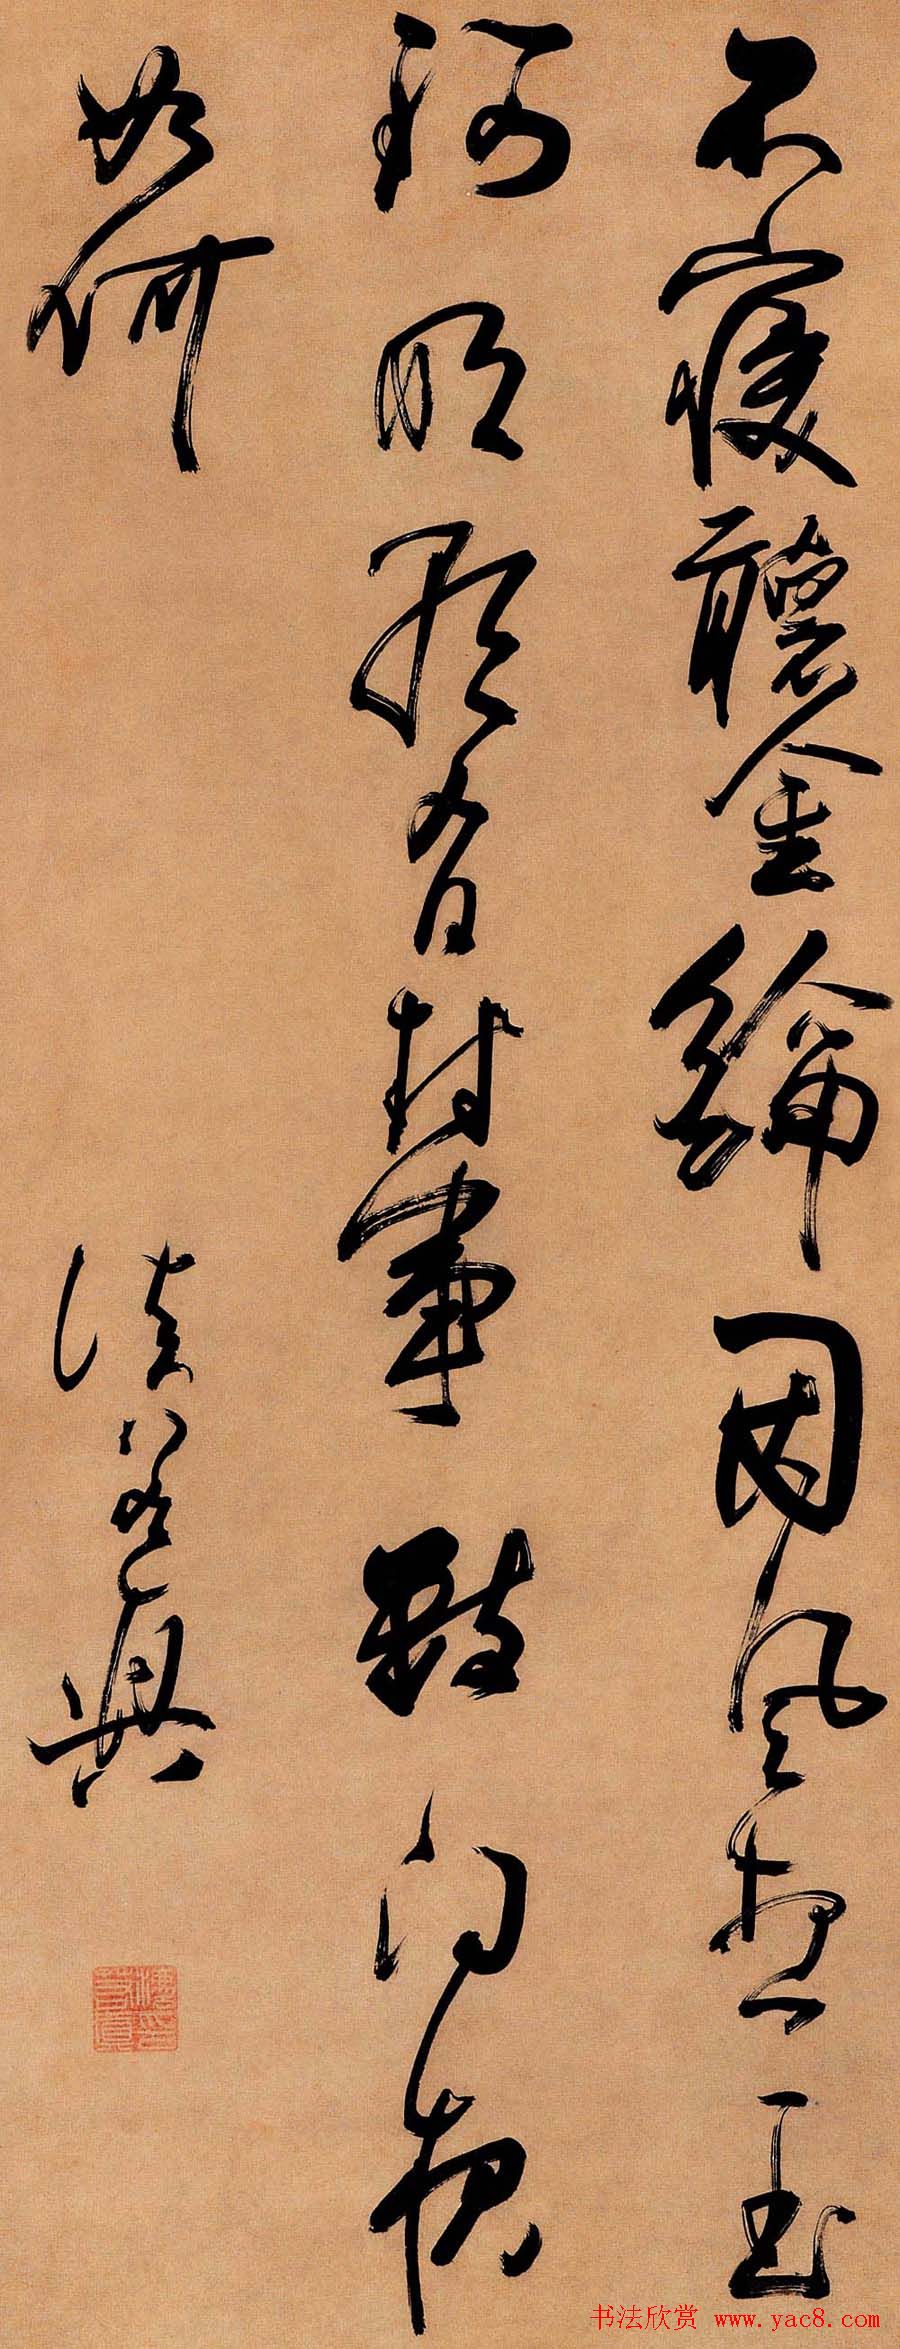 不寢聽金鑰因風想玉
珂明朝有封事數問夜
如何
法若真
书法欣赏 www.yac8.com